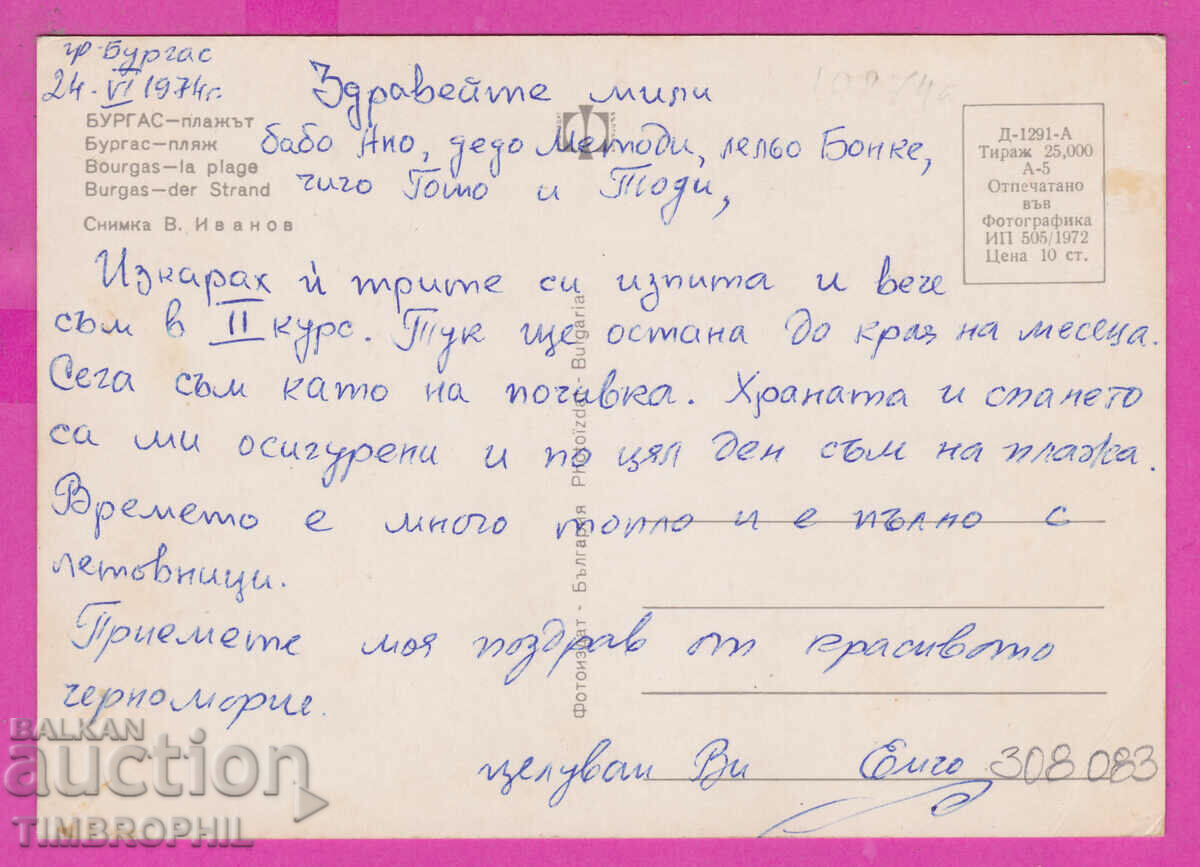 гр. Бургас
24. VI 1974г.
Здравейте мили
бабо Ано, дедо Методи, лельо Бонке,
чичо Гошо и Тоди,
БУРГАС—плажът
Бургас—пляж
Bourgas—la plage
Burgas—der Strand
Снимка В. Иванов
Д-1291-А
Тираж 25,000
А-5
Отпечатано
във
Фотографика
ИП 505/1972
Цена 10 ст.
Изкарах ѝ трите си изпита и вече
съм в II курс. Тук ще остана до края на месеца.
Сега съм като на почивка. Храната и спането
са ми осигурени и по цял ден съм на плажа.
Времето е много топло и е пълно с
летовници.
Приемете моя поздрав от красивото
черноморие.
целувам Ви Емчо
308083
Фотоиздат - България Photoïzdat - Bulgaria
BALKAN
auction
TIMBROPHIL